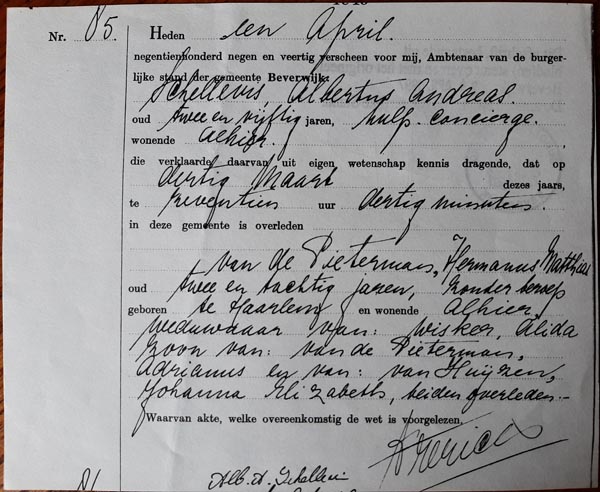 Nr. 85.
Heden een April.
negentienhonderd negen en veertig verscheen voor mij, Ambtenaar van de burger-
lijke stand der gemeente Beverwijk:
Schellevis, Albertus Andreas.
oud twee en vijftig jaren, hulp-concierge.
wonende alhier.
die verklaarde daarvan uit eigen wetenschap kennis dragende, dat op
dertig Maart dezes jaars,
te zeventien uur dertig minuten.
in deze gemeente is overleden
van de Pieterman, Hermanus Matthias
oud twee en tachtig jaren, zonder beroep
geboren te Haarlem en wonende Alhier,
weduwnaar van: Wisker, Alida
zoon van: van de Pieterman,
Adrianus en van: van Huijzen,
Johanna Elizabeth, beiden overleden.-
Waarvan akte, welke overeenkomstig de wet is voorgelezen,
Alb. A. Schellevis